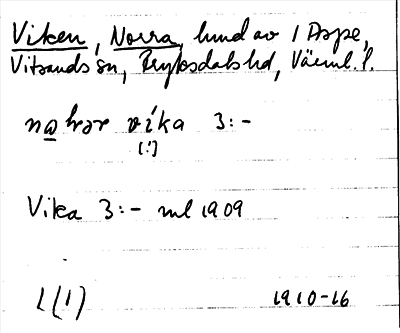 Viken, Norra, hmd av 1 Aspe,
Vitsands sn, Fryksdals hd, Värml. l.
na hrar vika 3:-
(!)
Vika 3:- ml 1909
L(1) 1910-16